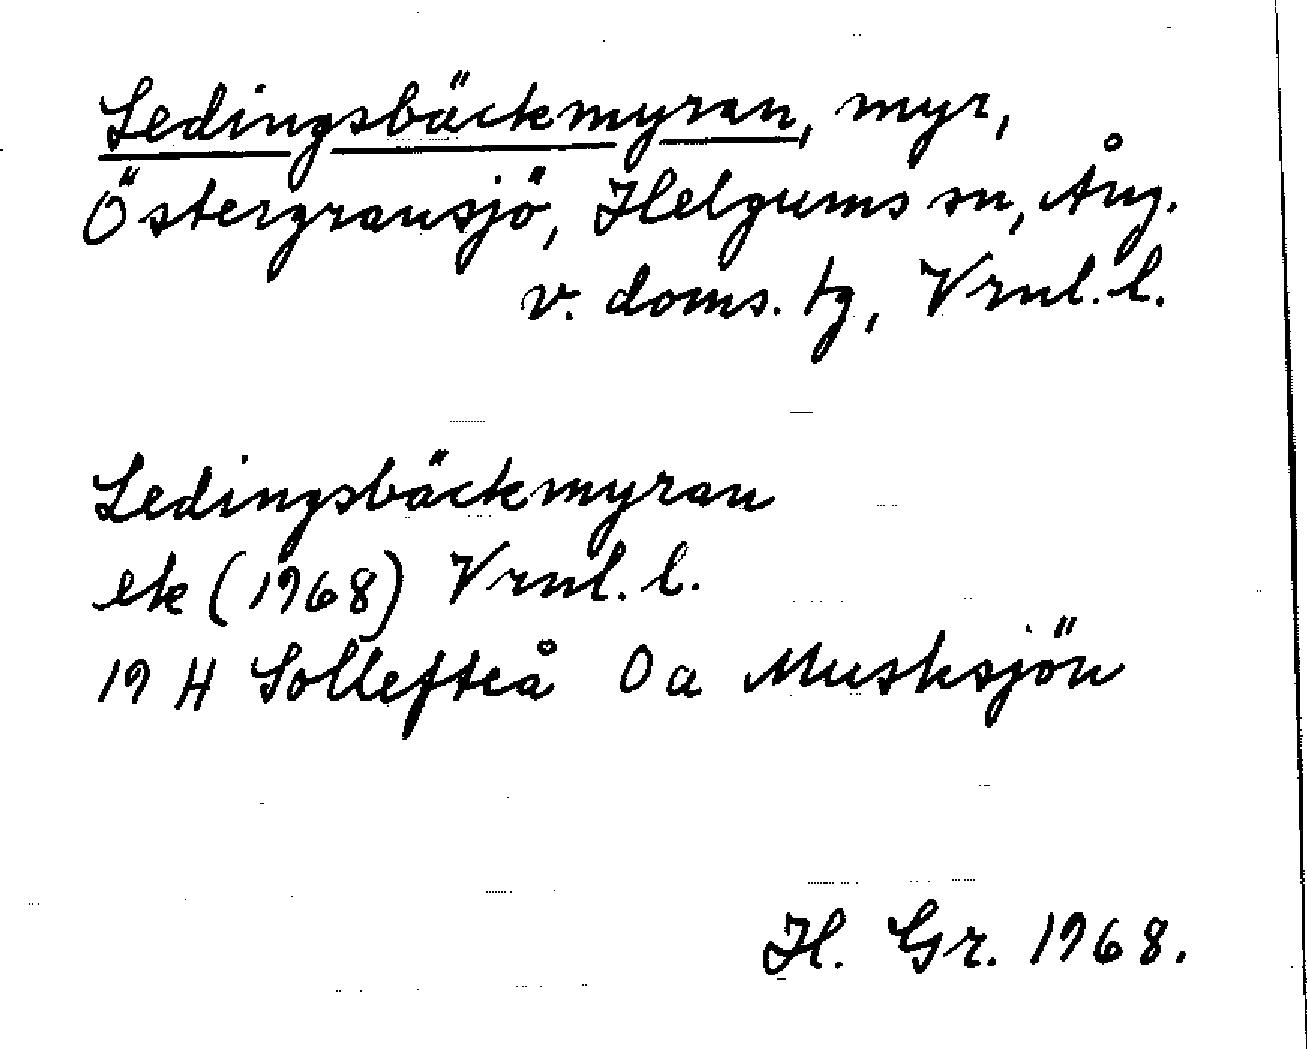 Ledingsbäckmyran, myr,
Östergransjö, Helgums sn, Ång.
v. doms. tg, Vrnl. l.
Ledingsbäckmyran
ek (1968) Vrnl. l.
19 H Sollefteå 0 a Musksjön
H. Gr. 1968.